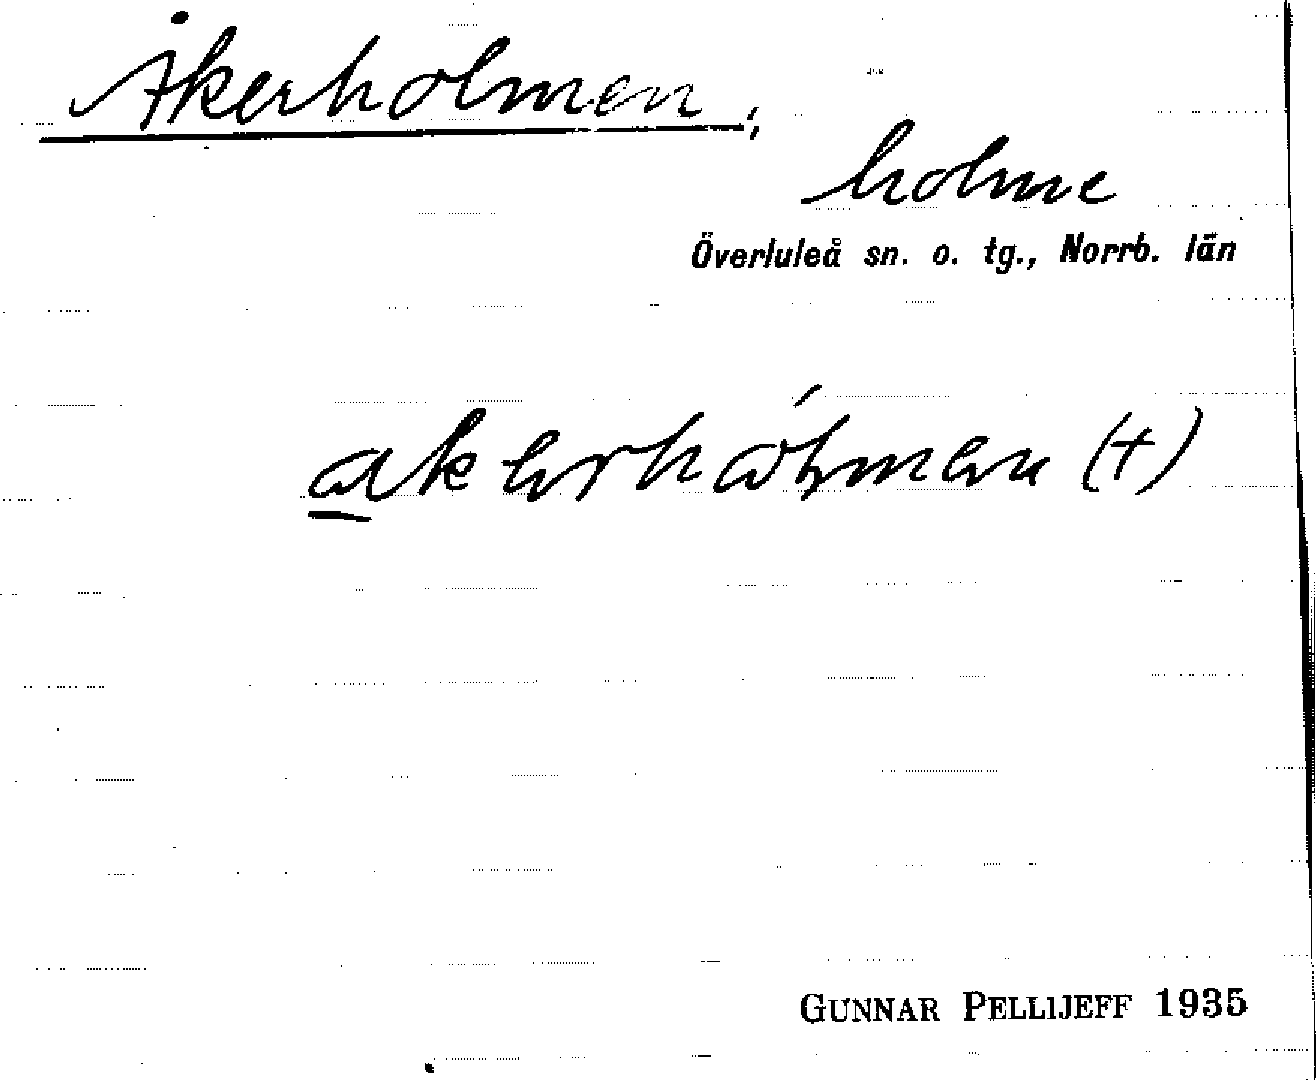 Åkerholmen,
holme
Överluleå sn. o. tg., Norrb. län
(†)
GUNNAR PELLIJEFF 1935